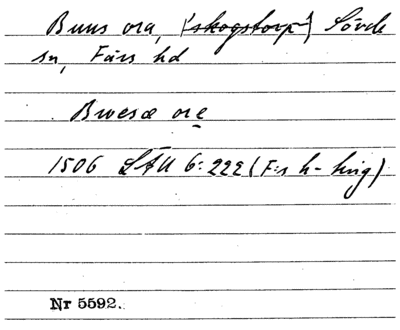 Buus ora, ['skogstorp'] Sövde
sn, Färs hd
Bwesæ ore
1506 LÄU 6:222 (F:s h-ting)
Nr 5592.